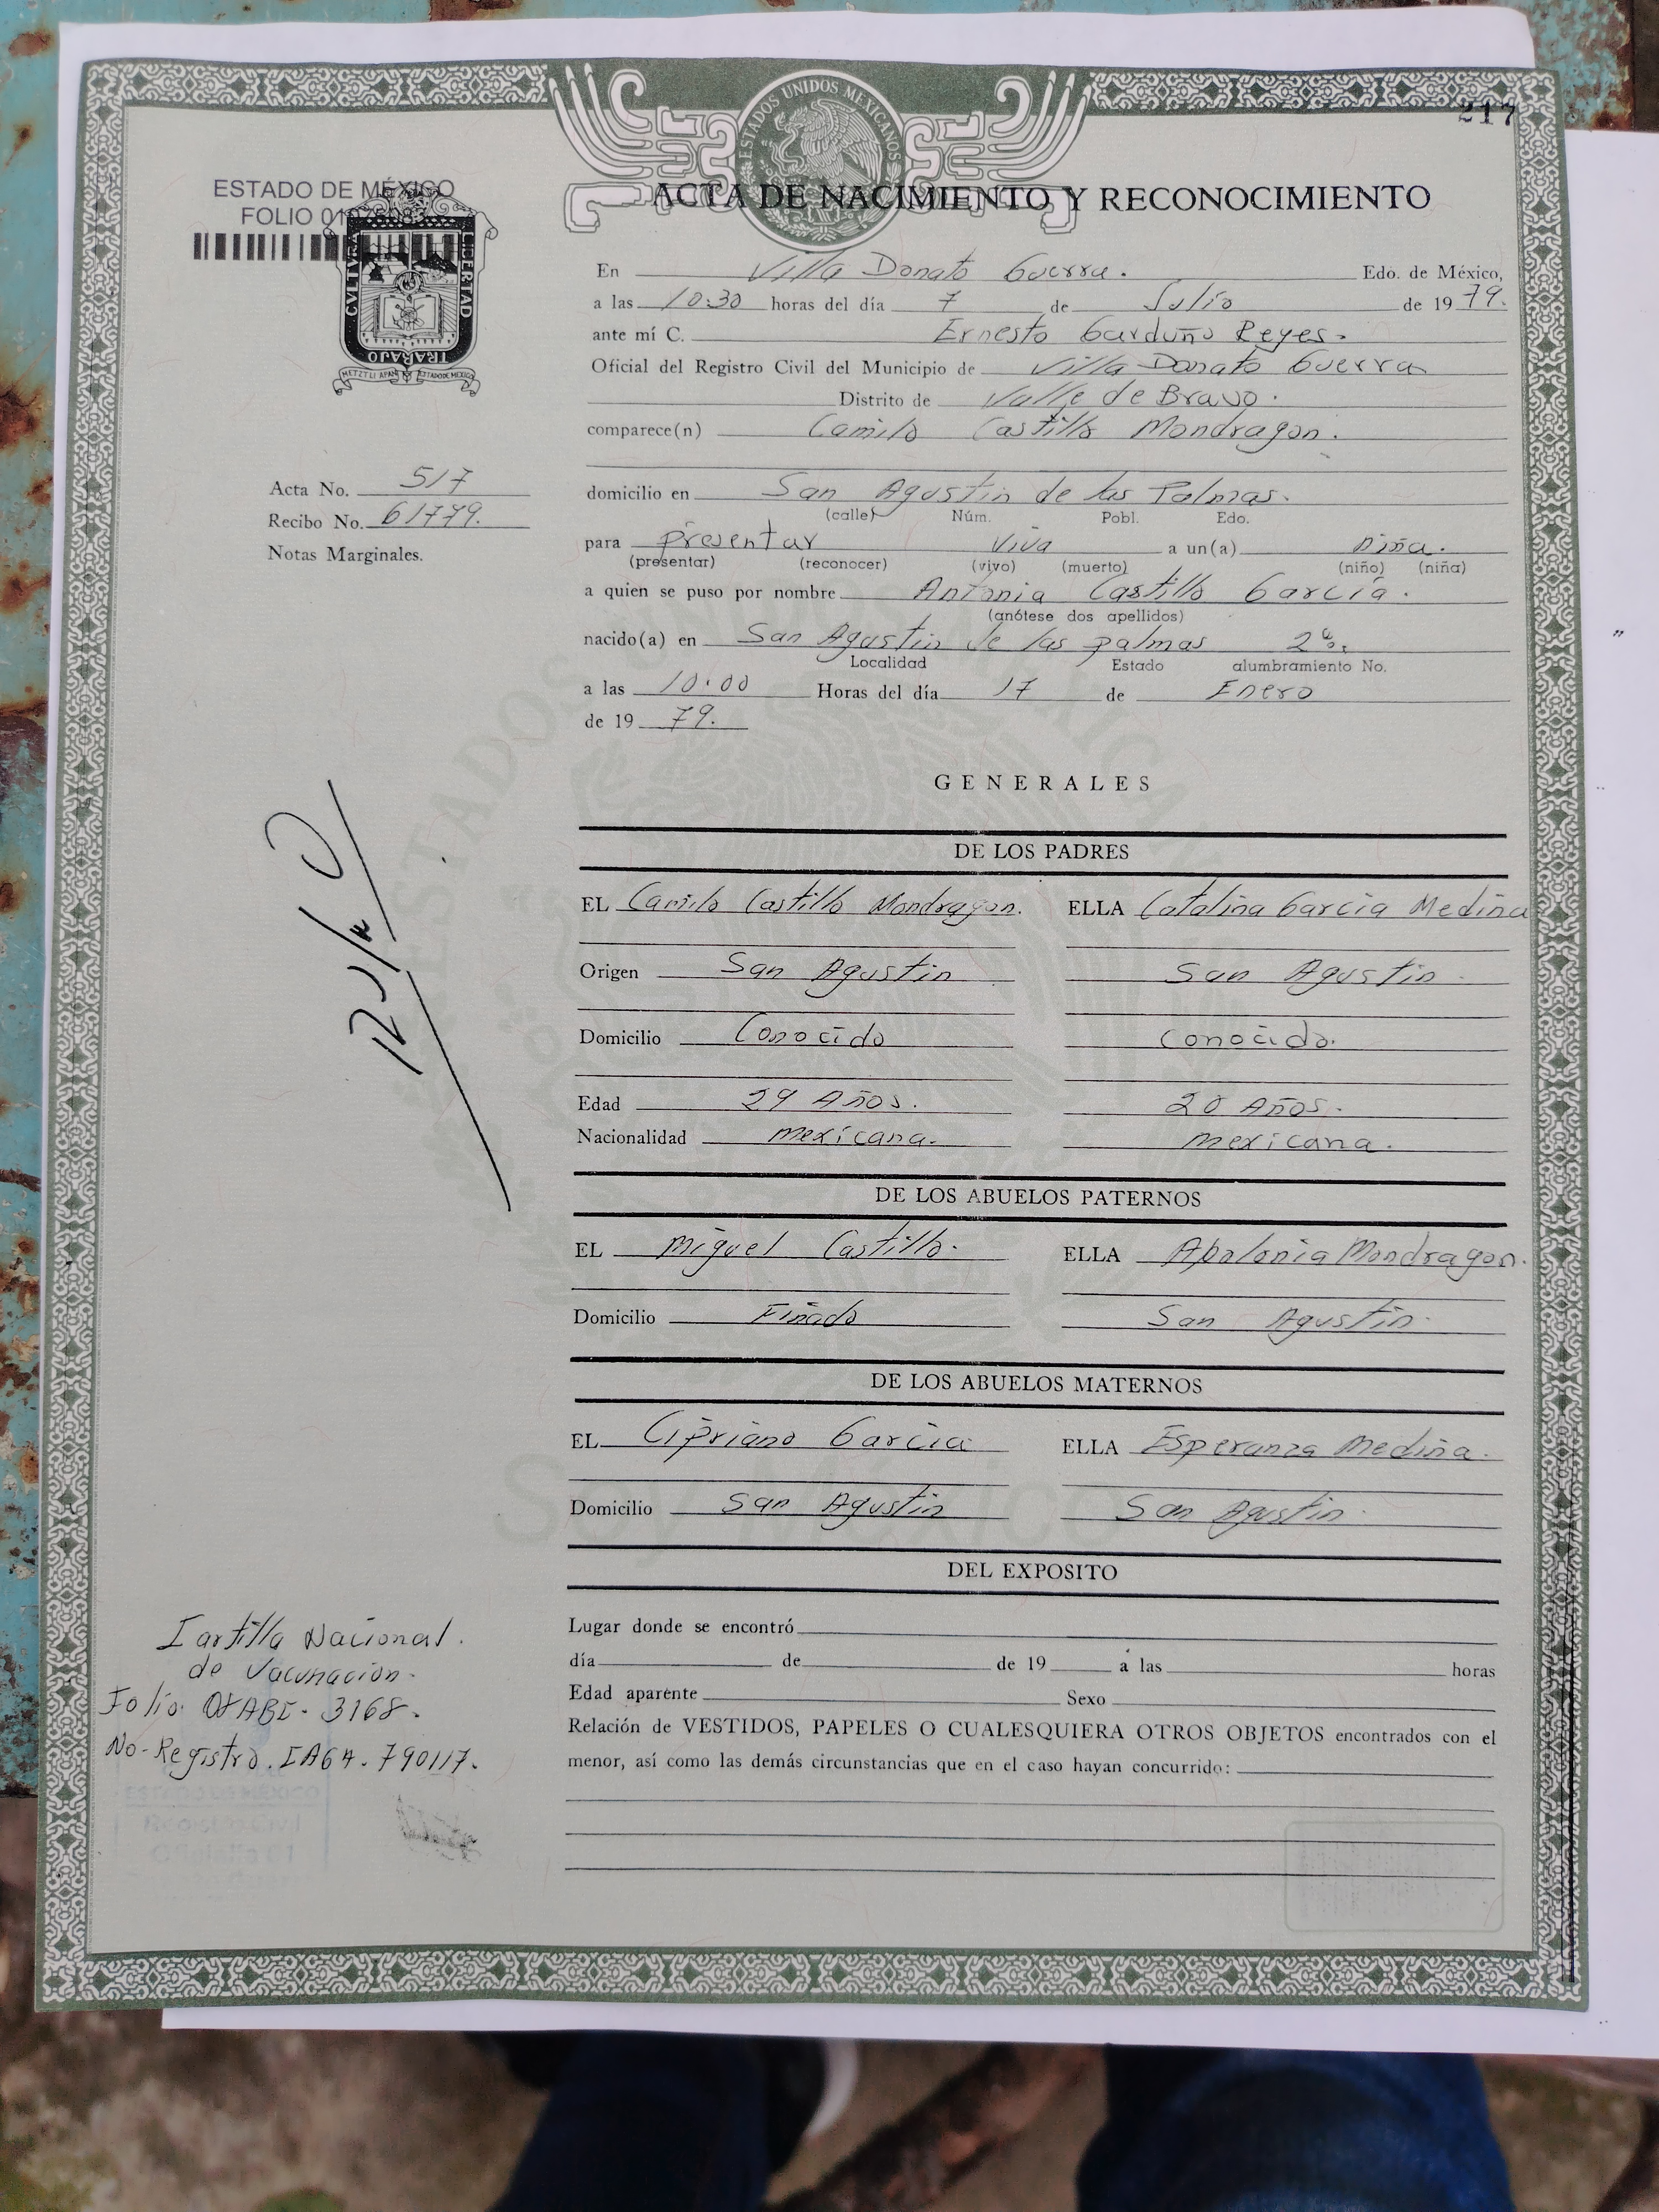 217
ESTADOS UNIDOS MEXICANOS
ESTADO DE MÉXICO
FOLIO
CVLTVRA
LIBERTAD
TRABAJO
ACTA DE NACIMIENTO Y RECONOCIMIENTO
En Villa Donato Guerra. Edo. de México,
a las 10:30 horas del día 7 de Julio de 19 79.
ante mí C. Ernesto Garduño Reyes.
Oficial del Registro Civil del Municipio de Villa Donato Guerra
Distrito de Valle de Bravo.
comparece(n) Camilo Castillo Mondragon.
Acta No. 517
Recibo No. 61779.
Notas Marginales.
domicilio en San Agustin de las Palmas.
(calle) Núm. Pobl. Edo.
para presentar viva a un(a) niña.
(presentar) (reconocer) (vivo) (muerto) (niño) (niña)
a quien se puso por nombre Antonia Castillo García.
(anótese dos apellidos)
nacido(a) en San Agustin de las palmas 2º.
Localidad Estado alumbramiento No.
a las 10:00 Horas del día 17 de Enero
de 19 79.
GENERALES
DE LOS PADRES
EL Camilo Castillo Mondragon. ELLA Catalina Garcia Medina
Origen San Agustin San Agustin
Domicilio Conocido Conocido.
Edad 29 Años. 20 Años.
Nacionalidad mexicana. mexicana.
DE LOS ABUELOS PATERNOS
EL Miguel Castillo. ELLA Apolonia Mondragon.
Domicilio Finado San Agustin
DE LOS ABUELOS MATERNOS
EL Cipriano Garcia ELLA Esperanza Medina.
Domicilio San Agustin San Agustin
DEL EXPOSITO
Lugar donde se encontró
día de de 19 a las horas
Edad aparente Sexo
Relación de VESTIDOS, PAPELES O CUALESQUIERA OTROS OBJETOS encontrados con el
menor, así como las demás circunstancias que en el caso hayan concurrido:
Cartilla Nacional.
de Vacunación.
Folio: 3168.
No-Registro. IA64-790117.
ESTADO DE MÉXICO
Registro Civil
Oficialía 01